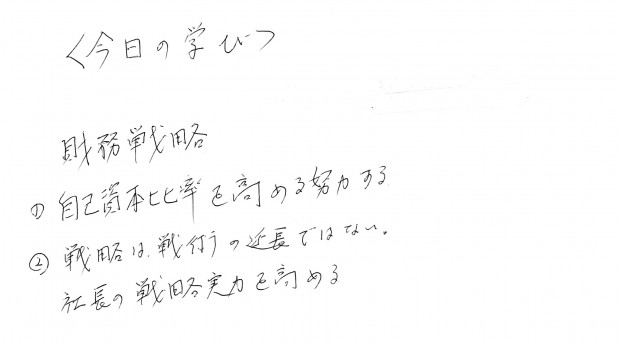 <今日の学び>
財務戦略
① 自己資本比率を高める努力する
② 戦略は、戦術の延長ではない。
社長の戦略実力を高める